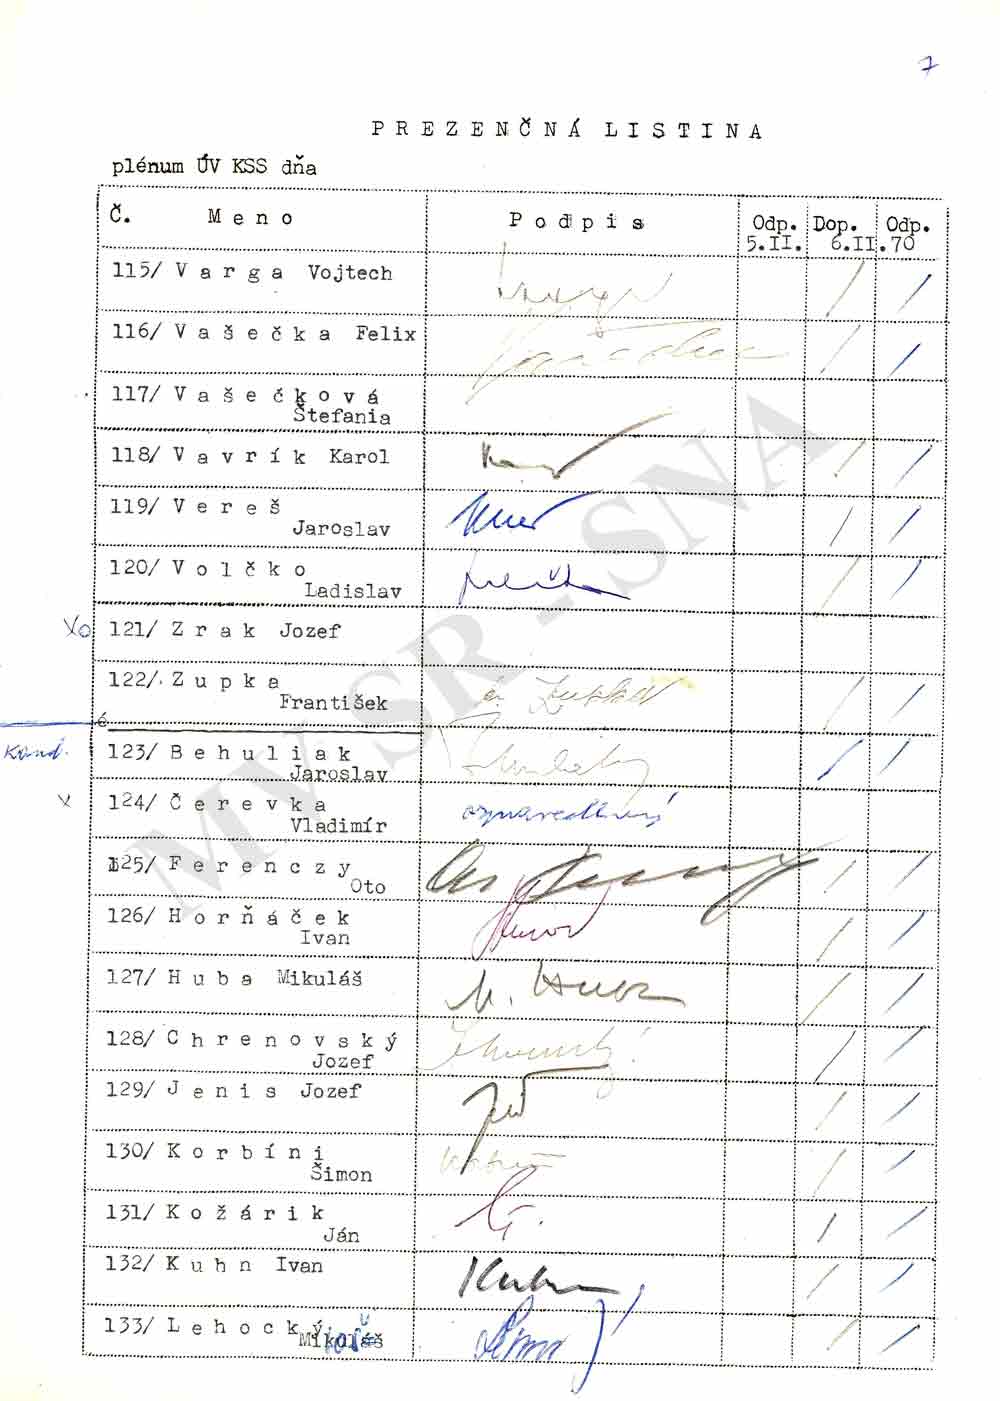 7
PREZENČNÁ LISTINA
plénum ÚV KSS dňa
Č. Meno Podpis Odp. Dop. Odp.
5.II. 6.II.70
115/ Varga Vojtech
116/ Vašečka Felix
117/ Vašečková
Štefania
118/ Vavrík Karol
119/ Vereš
Jaroslav
120/ Volčko
Ladislav
Xo 121/ Zrak Jozef
122/ Zupka
František
kand. 123/ Behuliak
Jaroslav
x 124/ Čerevka
Vladimír
ospravedlnený
125/ Ferenczy
Oto
126/ Horňáček
Ivan
127/ Huba Mikuláš M. Huba
128/ Chrenovský
Jozef
129/ Jenis Jozef
130/ Korbíni
Šimon
131/ Kožárik
Ján
132/ Kuhn Ivan Kuhn
133/ Lehocký
Mikuláš
MV SR - SNA